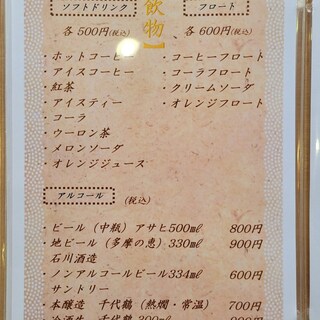 【飲物】
ソフトドリンク
各500円(税込)
・ホットコーヒー
・アイスコーヒー
・紅茶
・アイスティー
・コーラ
・ウーロン茶
・メロンソーダ
・オレンジジュース
フロート
各600円(税込)
・コーヒーフロート
・コーラフロート
・クリームソーダ
・オレンジフロート
アルコール (税込)
・ビール（中瓶）アサヒ500㎖ 800円
・地ビール（多摩の恵）330㎖ 900円
石川酒造
・ノンアルコールビール334㎖ 600円
サントリー
・本醸造 千代鶴（熱燗・常温） 700円
・冷酒生 千代鶴 300㎖